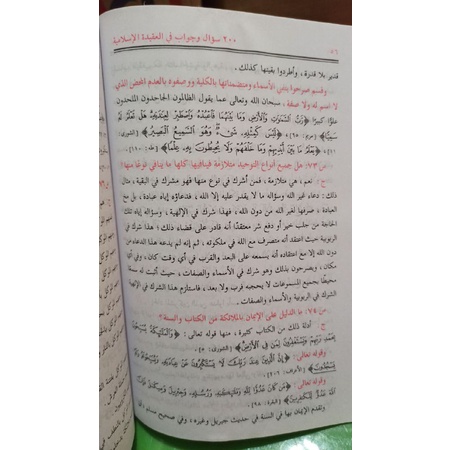 ٥٦ ٢٠٠ سؤال وجواب في العقيدة الإسلامية
قدير بلا قدرة، وأطردوا بقيتها كذلك.
وقسم صرحوا بنفي الأسماء ومتضمناتها بالكلية ووصفوه بالعدم المحض الذي
لا اسم له ولا صفة. سبحان الله وتعالى عما يقول الظالمون الجاحدون الملحدون
علوًا كبيرًا ﴿رَبُّ السَّمَاوَاتِ وَالْأَرْضِ وَمَا بَيْنَهُمَا فَاعْبُدْهُ وَاصْطَبِرْ لِعِبَادَتِهِ هَلْ تَعْلَمُ لَهُ
سَمِيًّا﴾ (مريم: ٦٥)، ﴿لَيْسَ كَمِثْلِهِ شَيْءٌ وَهُوَ السَّمِيعُ الْبَصِيرُ﴾ (الشورى:
١١)، ﴿يَعْلَمُ مَا بَيْنَ أَيْدِيهِمْ وَمَا خَلْفَهُمْ وَلَا يُحِيطُونَ بِهِ عِلْمًا﴾ (طه: ١١٠).
س٧٣: هل جميع أنواع التوحيد متلازمة فينافيها كلها ما ينافي نوعًا منها؟
ج: نعم، هي متلازمة، فمن أشرك في نوع منها فهو مشرك في البقية، مثال
ذلك: دعاء غير الله وسؤاله ما لا يقدر عليه إلا الله، فدعاؤه إياه عبادة، بل مخ
العبادة، صرفها لغير الله من دون الله، فهذا شرك في الإلهية، وسؤاله إياه تلك
الحاجة من جلب خير أو دفع شر معتقدًا أنه قادر على قضاء ذلك؛ هذا شرك في
الربوبية حيث اعتقد أنه متصرف مع الله في ملكوته، ثم إنه لم يدعه هذا الدعاء من
دون الله إلا مع اعتقاده أنه يسمعه على البعد والقرب في أي وقت كان، وفي أي
مكان، ويصرحون بذلك وهو شرك في الأسماء والصفات، حيث أثبت له سمعًا
محيطًا بجميع المسموعات لا يحجبه قرب ولا بعد، فاستلزم هذا الشرك في الإلهية
الشرك في الربوبية والأسماء والصفات.
س٧٤: ما الدليل على الإيمان بالملائكة من الكتاب والسنة؟
ج: أدلة ذلك من الكتاب كثيرة، منها قوله تعالى: ﴿وَالْمَلَائِكَةُ يُسَبِّحُونَ
بِحَمْدِ رَبِّهِمْ وَيَسْتَغْفِرُونَ لِمَن فِي الْأَرْضِ﴾ (الشورى: ٥).
وقوله تعالى: ﴿إِنَّ الَّذِينَ عِندَ رَبِّكَ لَا يَسْتَكْبِرُونَ عَنْ عِبَادَتِهِ وَيُسَبِّحُونَهُ وَلَهُ
يَسْجُدُونَ﴾ (الأعراف: ٢٠٦).
وقوله تعالى: ﴿مَن كَانَ عَدُوًّا لِّلَّهِ وَمَلَائِكَتِهِ وَرُسُلِهِ وَجِبْرِيلَ وَمِيكَالَ فَإِنَّ
اللَّهَ عَدُوٌّ لِّلْكَافِرِينَ﴾ (البقرة: ٩٨).
وتقدم الإيمان بها في السنة في حديث جبريل وغيره، وفي صحيح مسلم